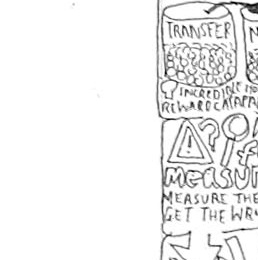 TRANSFER
INCREDIBLE
REWARD
if
measu
MEASURE THE
GET THE WR